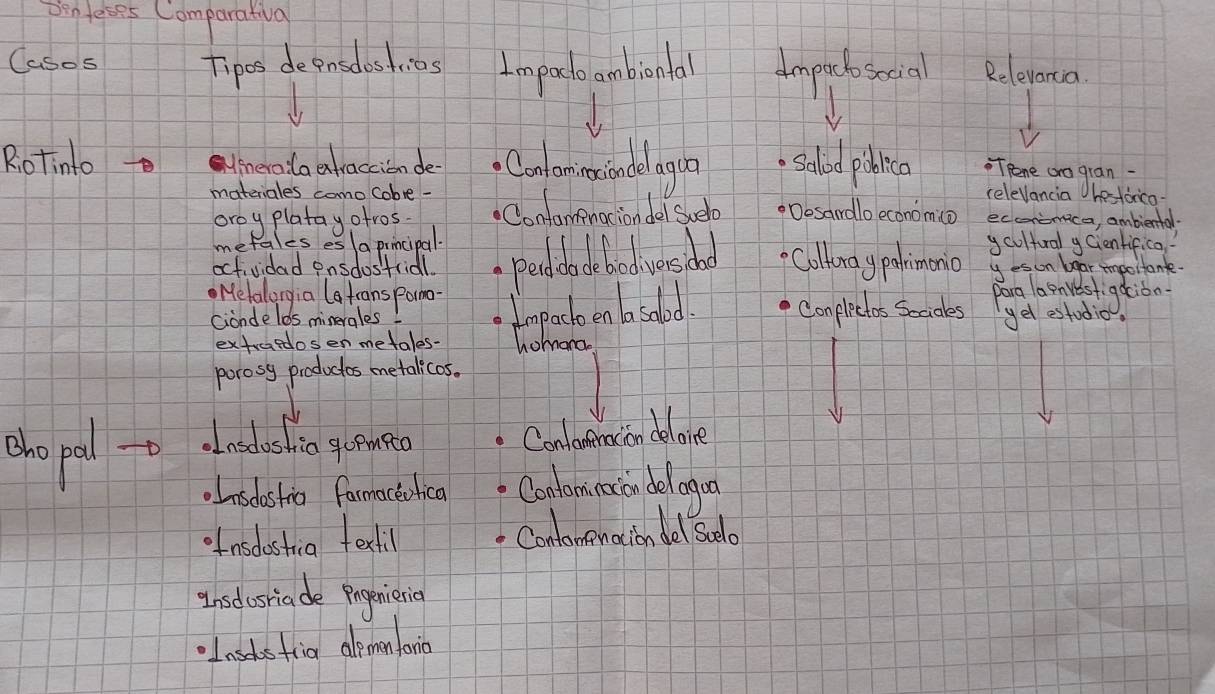 Sinteses Comparativa
Casos
Tipos de insdustrias
Impacto ambiental
Impacto social
Relevancia.
RioTinto
• Mineria: la extracción de-
materiales como cobre-
oro y plata y otros-
metales es la principal-
actividad insdustrial.
• Metalurgia La transforma-
ción de los minerales-
extraidos en metales-
puros y productos metalicos.
• Contaminación del agua
• Contaminación del Suelo
• perdida de biodiversidad
• Impacto en la salud.
humana.
• Salud pública
• Desarrollo económico
• Cultura y patrimonio
• Conflictos Sociales
• Tiene una gran-
relevancia histórica-
económica, ambiental-
y cultural y cientifica,-
y es un lugar importante-
para la investigación-
y el estudio.
Bhopal
• Insdustria quimica
• Insdustria farmacéutica
• Insdustria textil
• Insdusria de ingenieria
• Insdustria alimentaria
• Contaminación del aire
• Contaminación del agua
• Contaminación del Suelo